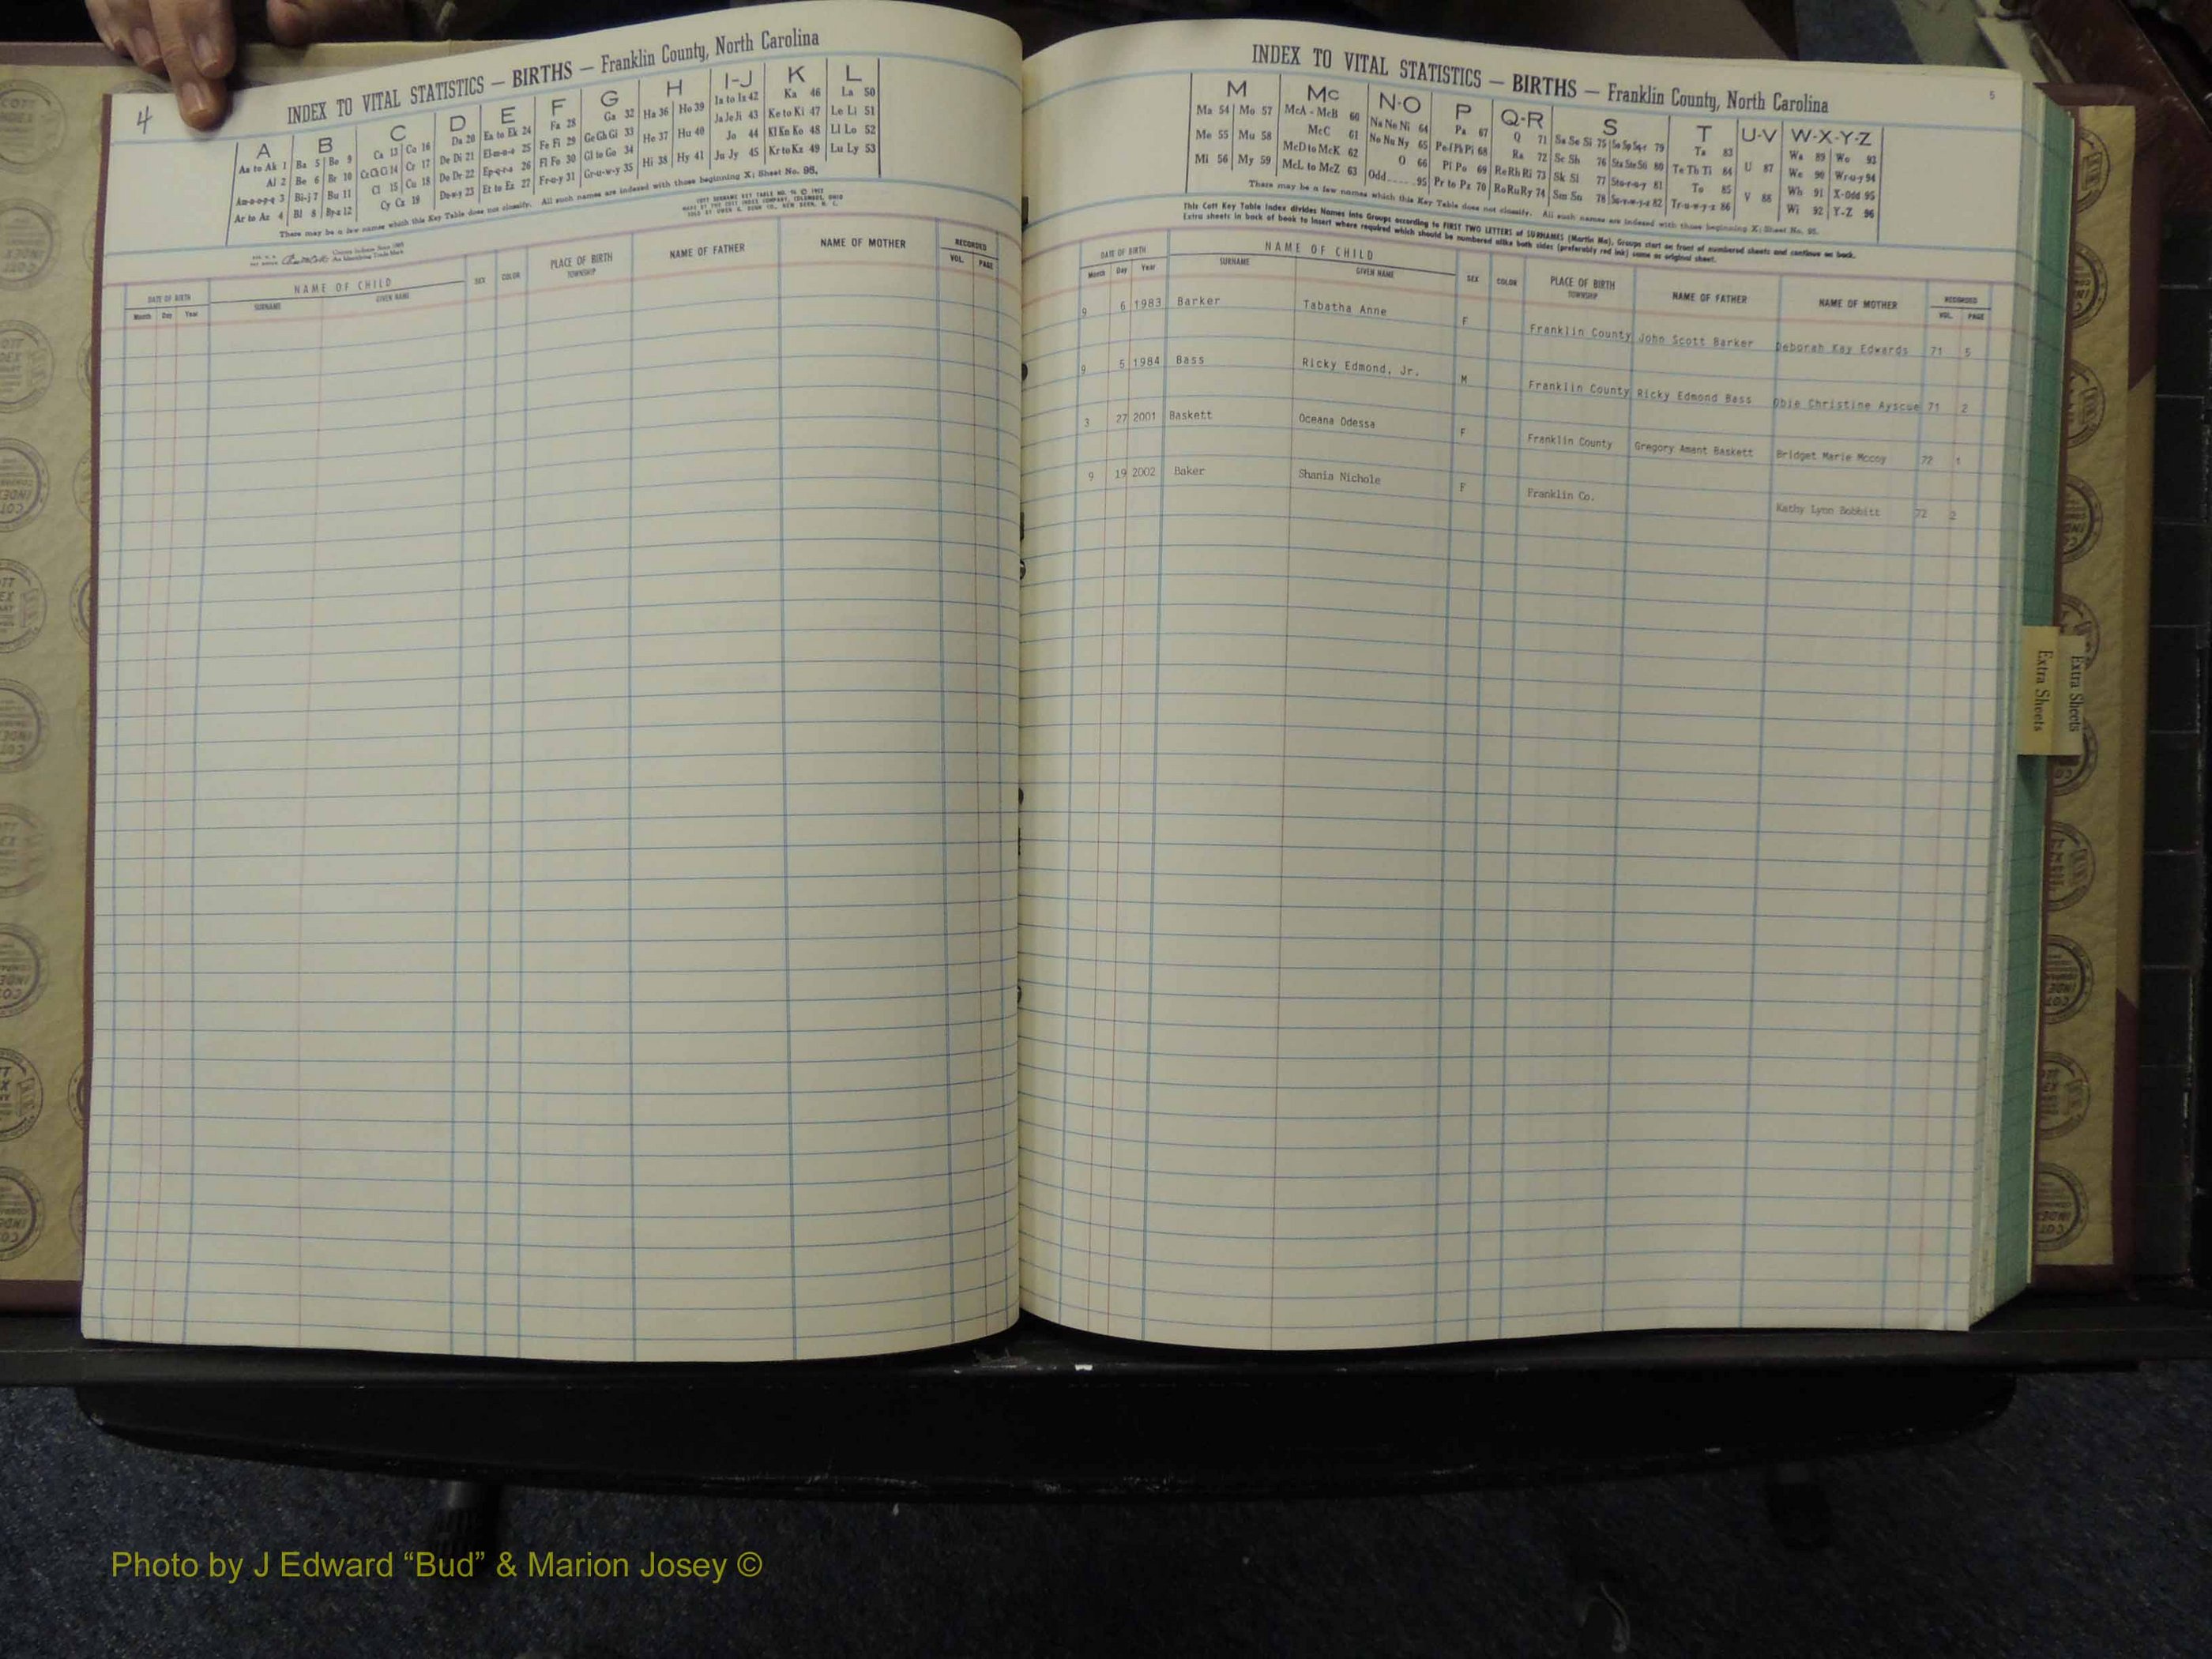 4
INDEX TO VITAL STATISTICS — BIRTHS — Franklin County, North Carolina
A B C D E F G H I-J K L
Aa to Ak 1 Ba 5 Bo 9 Ca 13 Co 16 Da 20 Ea to Ek 24 Fa 28 Ga 32 Ha 36 Ho 39 Ia to Iz 42 Ka 46 La 50
Al 2 Be 6 Br 10 Ce Ch Ci 14 Cr 17 De Di 21 El-m-n-o 25 Fe Fi 29 Ge Gh Gi 33 He 37 Hu 40 Ja Je Ji 43 Ke to Ki 47 Le Li 51
Am-n-o-p-q 3 Bi-j 7 Bu 11 Cl 15 Cu 18 Do Dr 22 Ep-q-r-s 26 Fl Fo 30 Gl to Go 34 Hi 38 Hy 41 Jo 44 Kl Kn Ko 48 Ll Lo 52
Ar to Az 4 Bl 8 By-z 12 Cy Cz 19 Du-w-y 23 Et to Ez 27 Fr-u-y 31 Gr-u-w-y 35 Ju Jy 45 Kr to Kz 49 Lu Ly 53
There may be a few names which this Key Table does not classify. All such names are indexed with those beginning X; Sheet No. 95.
DATE OF BIRTH NAME OF CHILD SEX COLOR PLACE OF BIRTH NAME OF FATHER NAME OF MOTHER RECORDED
Month Day Year SURNAME GIVEN NAME TOWNSHIP VOL. PAGE
5
INDEX TO VITAL STATISTICS — BIRTHS — Franklin County, North Carolina
M Mc N-O P Q-R S T U-V W-X-Y-Z
Ma 54 Mo 57 McA - McB 60 Na Ne Ni 64 Pa 67 Q 71 Sa Se Si 75 79 Ta 83 Wa 89 Wo 93
Me 55 Mu 58 McC 61 No Nu Ny 65 Pe-f Ph Pi 68 Ra 72 Sc Sh 76 80 Te Th Ti 84 U 87 We 90 Wr-u-y 94
Mi 56 My 59 McD to McK 62 O 66 Pl Po 69 Re Rh Ri 73 Sk Sl 77 81 To 85 V 88 Wh 91 X-Odd 95
McL to McZ 63 Odd 95 Pr to Pz 70 Ro Ru Ry 74 Sm Sn 78 82 Tr-u-w-y-z 86 Wi 92 Y-Z 96
There may be a few names which this Key Table does not classify. All such names are indexed with those beginning X; Sheet No. 95.
This Cott Key Table Index divides Names into Groups according to FIRST TWO LETTERS of SURNAMES (Martin Ma), Groups start on front of numbered sheets and continue on back.
Extra sheets in back of book to insert where required which should be numbered alike both sides (preferably red ink) same as original sheet.
DATE OF BIRTH NAME OF CHILD SEX COLOR PLACE OF BIRTH NAME OF FATHER NAME OF MOTHER RECORDED
Month Day Year SURNAME GIVEN NAME TOWNSHIP VOL. PAGE
9 6 1983 Barker Tabatha Anne F Franklin County John Scott Barker Deborah Kay Edwards 71 5
9 5 1984 Bass Ricky Edmond, Jr. M Franklin County Ricky Edmond Bass Obie Christine Ayscue 71 2
3 27 2001 Baskett Oceana Odessa F Franklin County Gregory Amant Baskett Bridget Marie Mccoy 72 1
9 19 2002 Baker Shania Nichole F Franklin Co. Kathy Lynn Bobbitt 72 2
Extra Sheets
Extra Sheets
Photo by J Edward “Bud” & Marion Josey ©